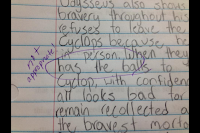 Odysseus also shows
bravery throughout his
refuses to leave the
Cyclops because
in person. When they
has the balls to s
Cyclop, with confidenc
all looks bad for
remain recollected a
the braves morta
not
appropriate